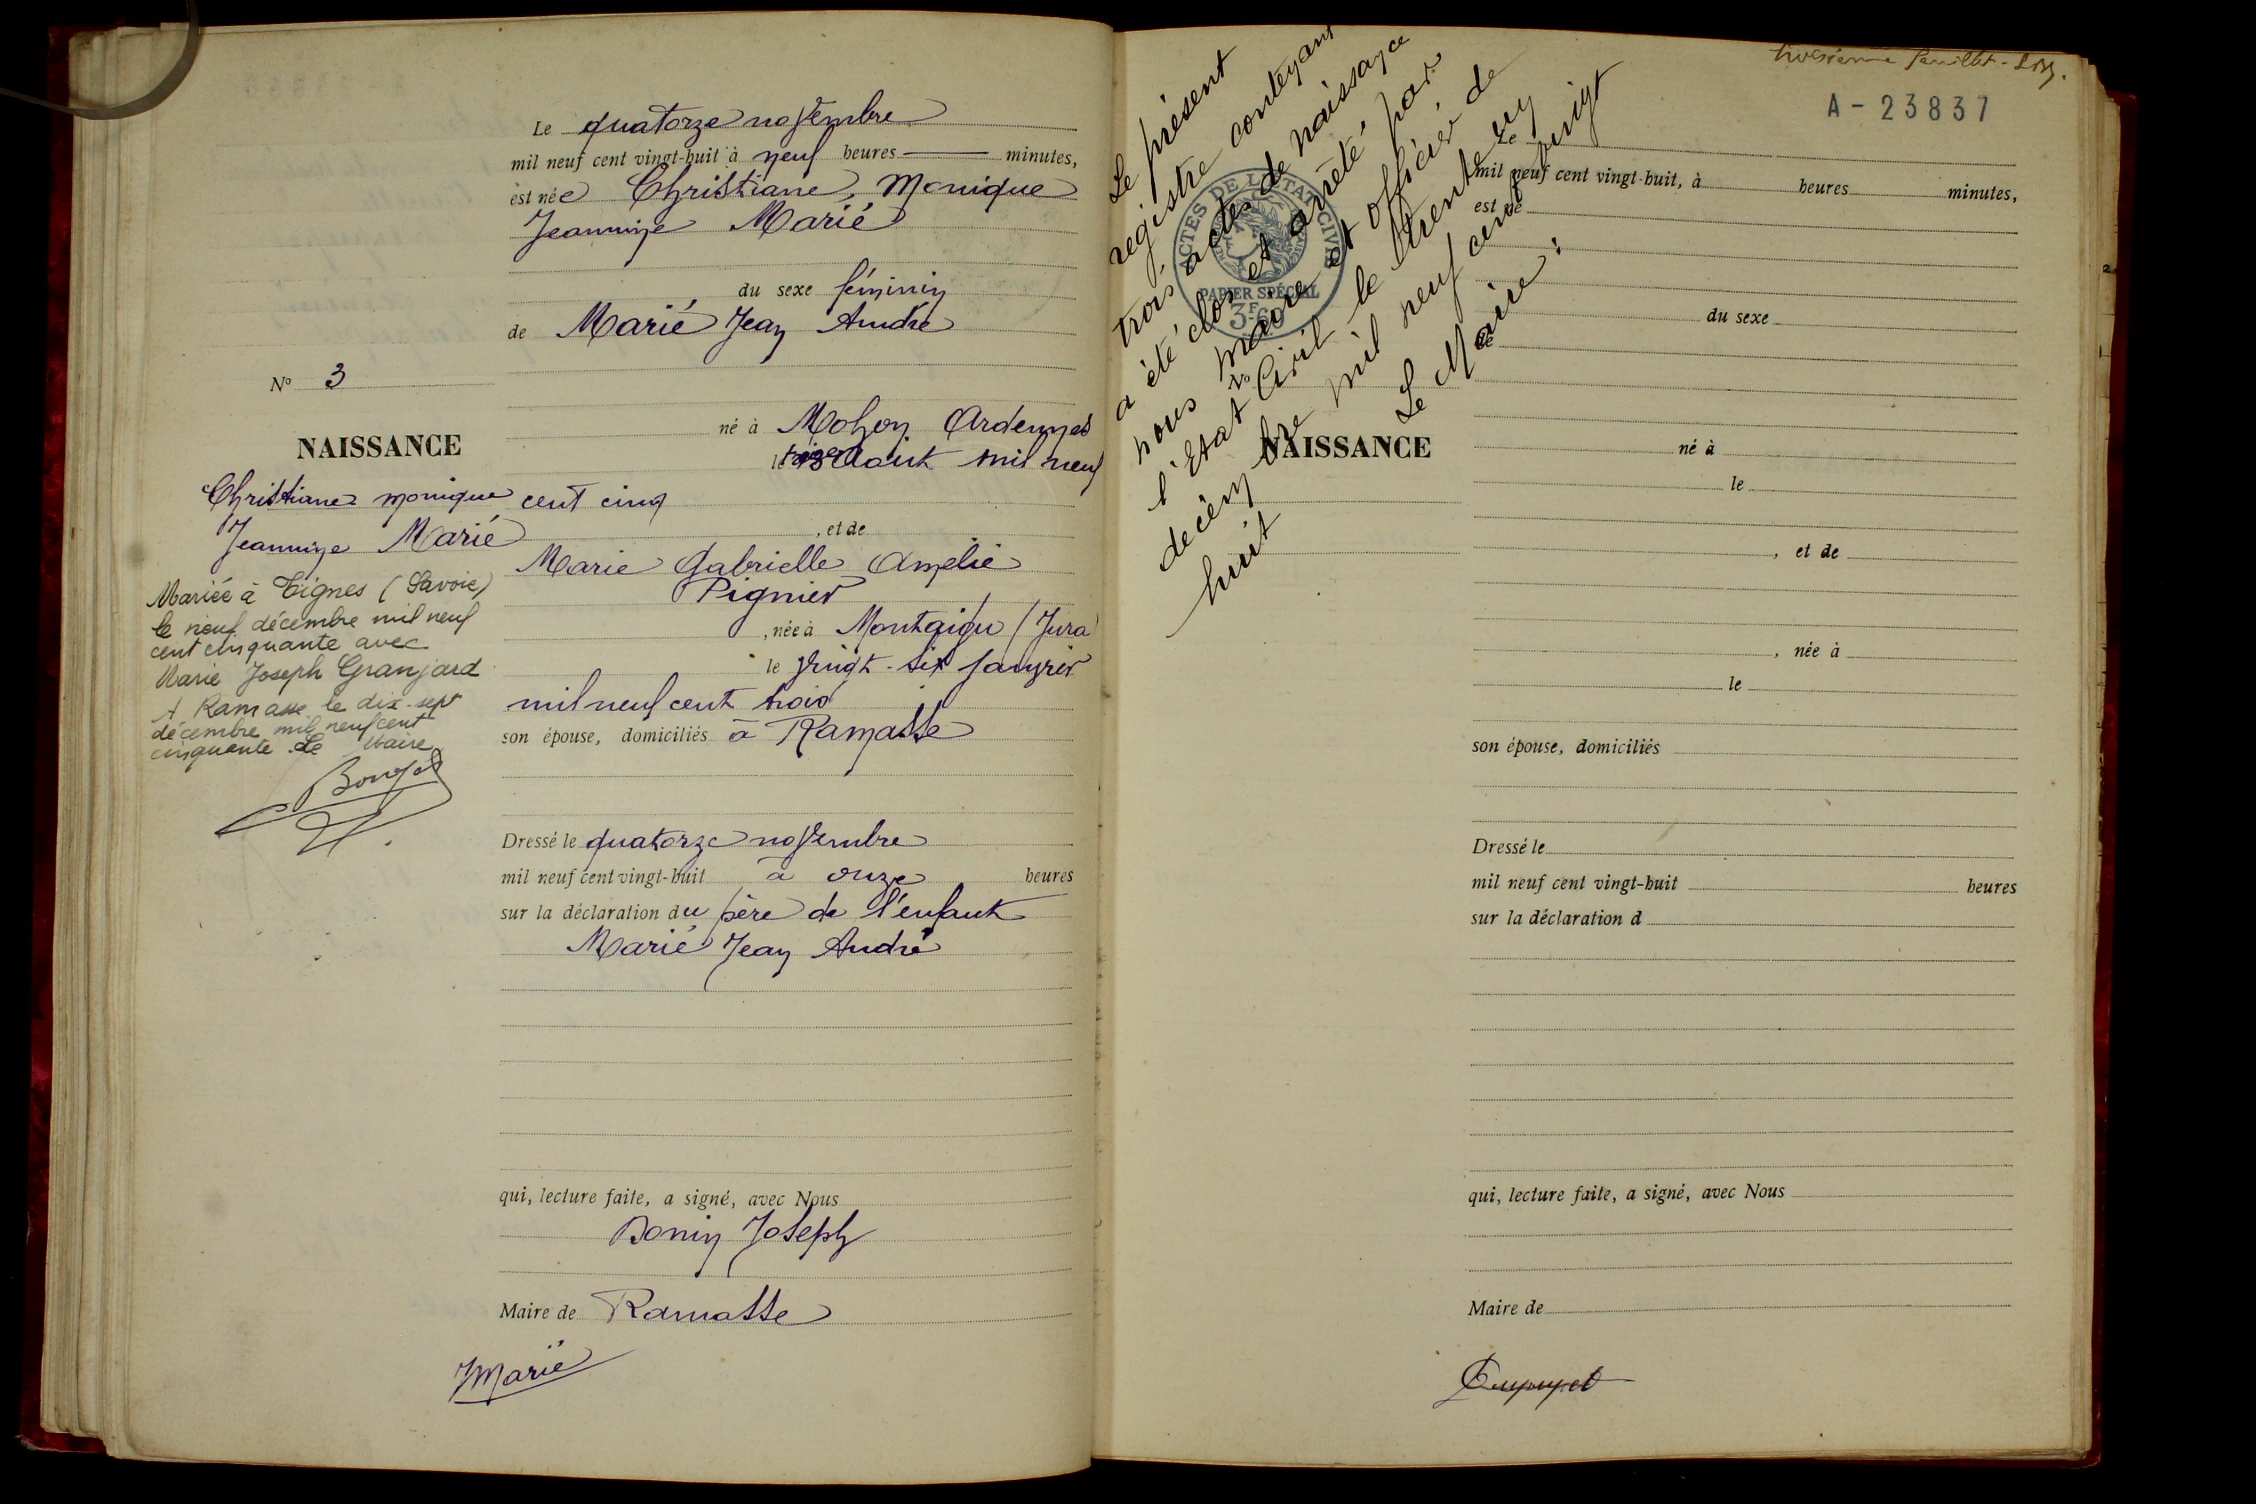 Le quatorze novembre
mil neuf cent vingt-huit à neuf heures minutes,
est née Christiane, Monique
Jeannine Marié
du sexe féminin
de Marié Jean André
No 3
né à Mohon Ardennes
le treize Août mil neuf
cent cinq
, et de
Marie Gabrielle Amélie
Pignier
, née à Montaigu (Jura)
le vingt-six janvier
mil neuf cent trois
son épouse, domiciliés à Ramasse
Dressé le quatorze novembre
mil neuf cent vingt-huit à onze heures
sur la déclaration du père de l'enfant
Marié Jean André
qui, lecture faite, a signé, avec Nous
Bonin Joseph
Maire de Ramasse
Marié
NAISSANCE
Christiane monique
Jeannine Marié
Mariée à Tignes (Savoie)
le neuf décembre mil neuf
cent cinquante avec
Marie Joseph Granjard
A Ramasse le dix-sept
décembre mil neuf cent
cinquante Le Maire
Le présent
registre contenant
trois actes de naissance
a été clos et arrêté par
nous maire et officier de
l'Etat Civil le trente un
décembre mil neuf cent vingt
huit
Le Maire :
ACTES DE L'ETAT CIVIL
PAPIER SPÉCIAL
3F.60
troisième feuillet
A - 23837
Le
mil neuf cent vingt-huit, à heures minutes,
est né
du sexe
de
NAISSANCE
né à
le
, et de
, née à
le
son épouse, domiciliés
Dressé le
mil neuf cent vingt-huit heures
sur la déclaration d
qui, lecture faite, a signé, avec Nous
Maire de